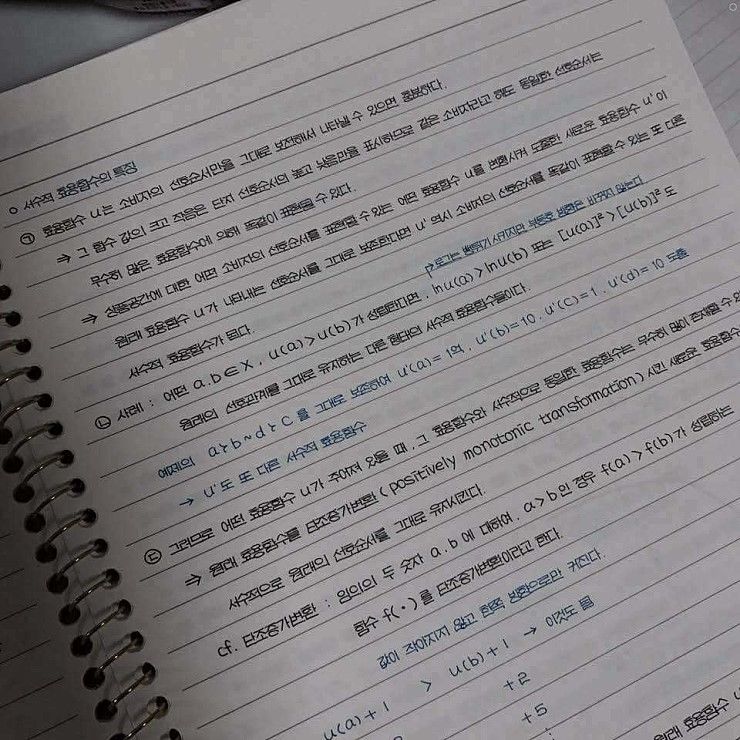 ○ 서수적 효용함수의 특징
㉠ 효용함수 u는 소비자의 선호순서만을 그대로 보전해서 나타낼 수 있으면 충분하다.
⇒ 그 함수 값의 크고 작음은 단지 선호순서의 높고 낮음만을 표시하므로 같은 소비자라고 해도 동일한 선호순서는
무수히 많은 효용함수에 의해 똑같이 표현될 수 있다.
⇒ 상품공간에 대한 어떤 소비자의 선호순서를 표현할 수 있는 어떤 효용함수 u를 변형시켜 도출한 새로운 효용함수 u'이
원래 효용함수 u가 나타내는 선호순서를 그대로 보존한다면 u' 역시 소비자의 선호순서를 똑같이 표현할 수 있는 또 다른
서수적 효용함수가 된다.
로그는 변형시키지만 부등호 방향은 바꾸지 않는다
㉡ 사례 : 어떤 a.b∈X, u(a)>u(b)가 성립한다면, lnu(a)>lnu(b) 또는 [u(a)]²>[u(b)]²도
원래의 선호관계를 그대로 유지하는 다른 형태의 서수적 효용함수들이다.
예제의 a≻b~d≻c를 그대로 보존하여 u'(a)=19, u'(b)=10, u'(c)=1, u'(d)=10 도출
→ u'도 또 다른 서수적 효용함수
㉢ 그러므로 어떤 효용함수 u가 주어져 있을 때, 그 효용함수와 서수적으로 동일한 효용함수는 무수히 많이 존재할 수
⇒ 원래 효용함수를 단조증가변환(positively monotonic transformation)시킨 새로운 효용함수
서수적으로 원래의 선호순서를 그대로 유지시킨다.
cf. 단조증가변환 : 임의의 두 숫자 a.b에 대하여, a>b인 경우 f(a)>f(b)가 성립하는
함수 f(·)를 단조증가변환이라고 한다.
값이 작아지지 않고 한쪽 방향으로만 커진다.
u(a)+1 > u(b)+1 → 이것도 됨
+2
+5
원래 효용함수